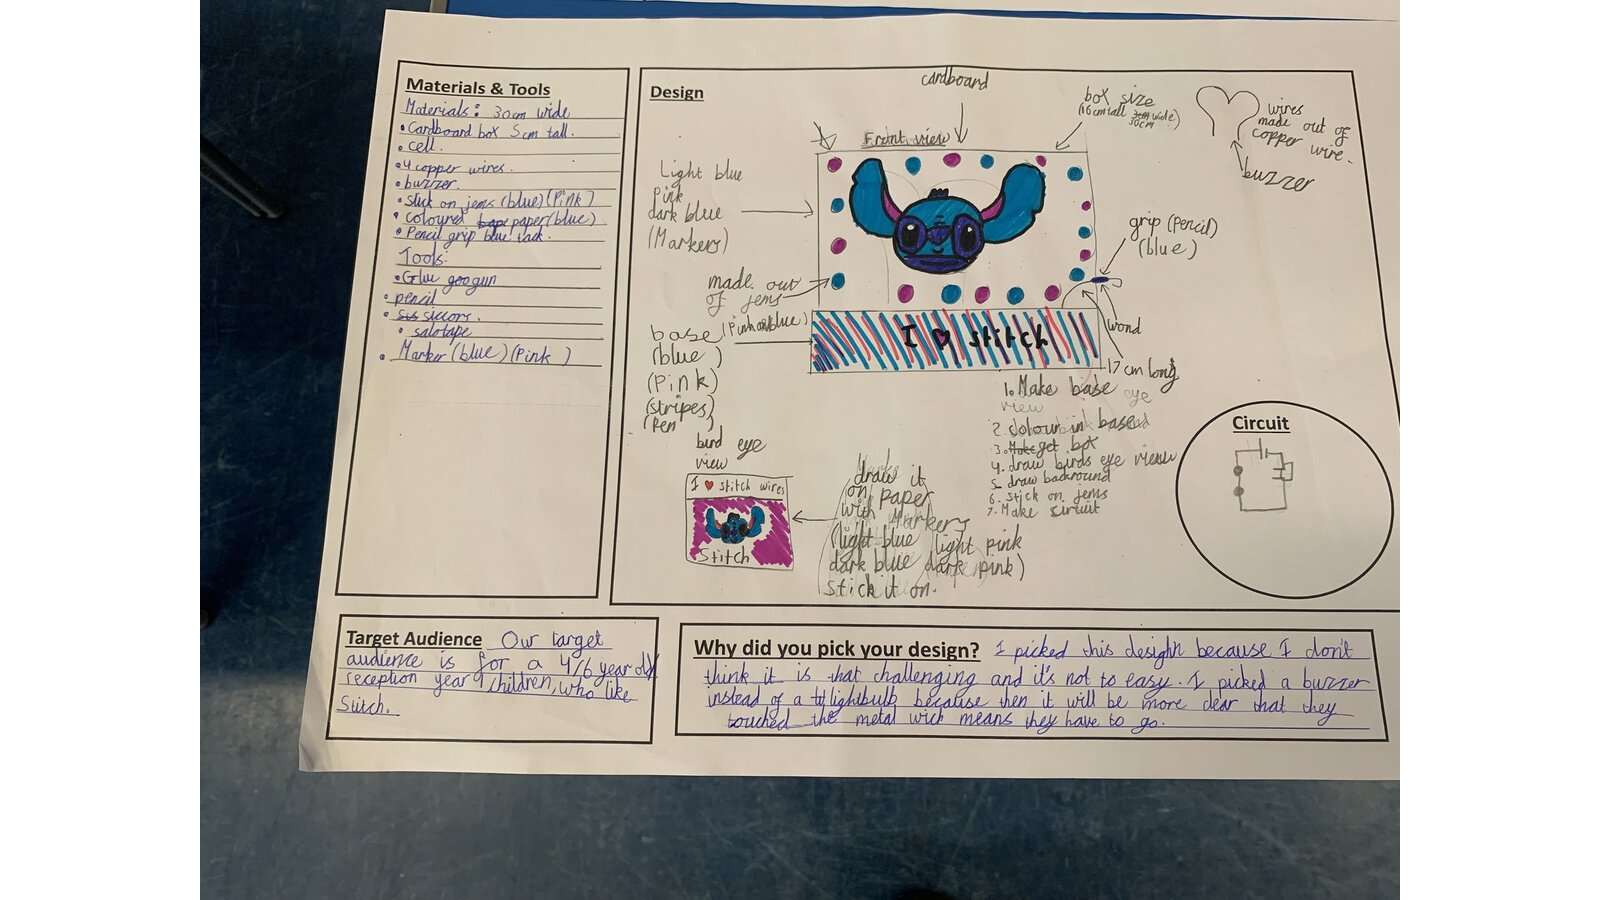 Materials & Tools
Materials: 30cm wide
• Cardboard box 5cm tall.
• cell.
• 4 copper wires.
• buzzer.
• stick on jems (blue) (Pink)
• coloured paper (blue)
• Pencil grip blue tack.
Tools:
• Glue gun
• pencil
• siccors.
• salotape
• Marker (blue) (Pink)
Design
cardboard
Front view
box size
(16cm tall wide)
30cm
wires
made out of
copper wire.
buzzer
Light blue
Pink
dark blue
(Markers)
made out
of jems
(Pink blue)
grip (Pencil)
(blue)
wond
17cm long
base
(blue)
(Pink)
(stripes)
(Pen)
I ♥ stitch
bird eye
view
I ♥ stitch wires
Stitch
draw it
on paper
with Markers
(light blue light pink
dark blue dark pink)
stick it on.
1. Make base eye
view
2. colour in base
3. get box
4. draw birds eye view
5. draw backround
6. stick on jems
7. Make circuit
Circuit
Target Audience Our target
audience is for a 4/6 year old/
reception year children, who like
Stitch.
Why did you pick your design? I picked this desighn because I don't
think it is that challenging and it's not to easy. I picked a buzzer
instead of a lightbulb because then it will be more clear that they
touched the metal wich means they have to go.